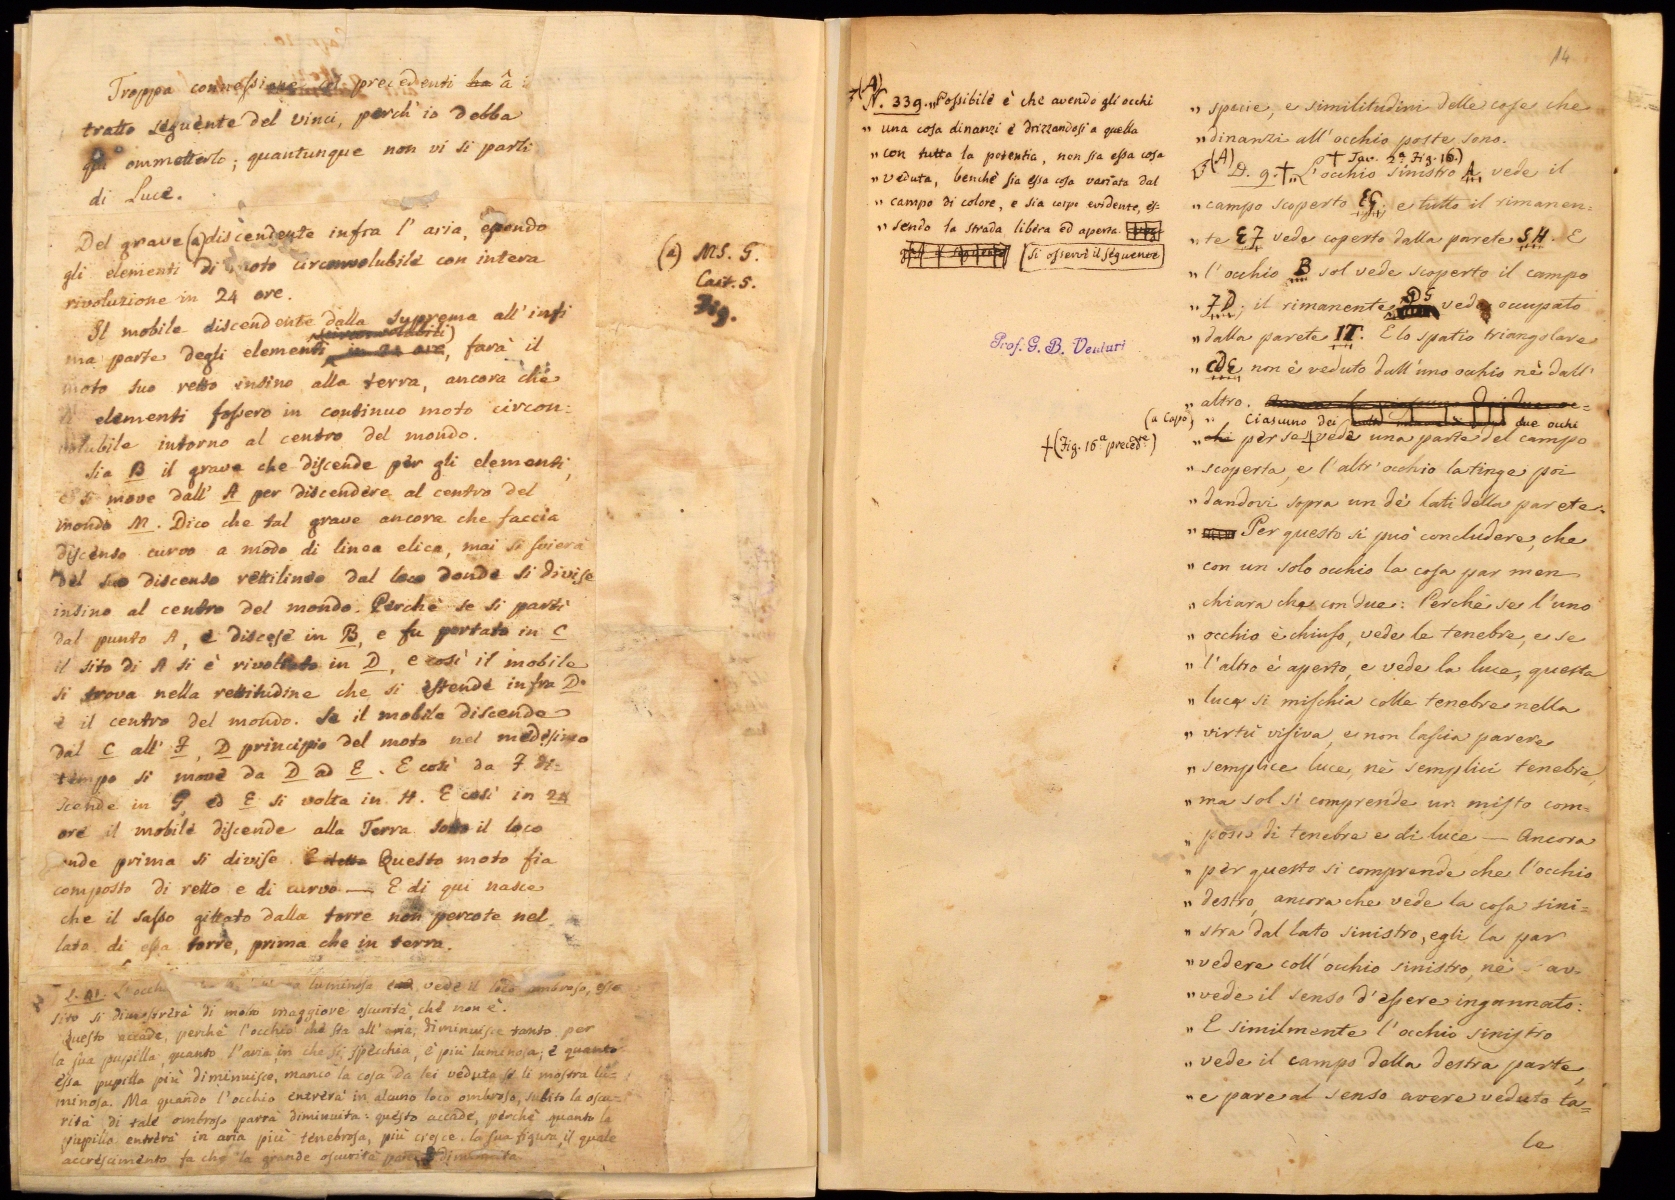 Troppa connessione coi precedenti ha â il
tratto seguente del Vinci, perch' io debba
qui ommetterlo; quantunque non vi si parli
di Luce.
Del grave (a) discendente infra l' aria, essendo
gli elementi di moto circonvolubile con intera
rivoluzione in 24 ore.
Il mobile discendente dalla suprema all' infi
ma parte degli elementi circonvolubili in 24 ore, farà il
moto suo retto insino alla terra, ancora che
elementi fossero in continuo moto circon:
volubile intorno al centro del mondo.
Sia B il grave che discende per gli elementi,
e si move dall' A per discendere al centro del
mondo M. Dico che tal grave ancora che faccia
discenso curvo a modo di linea elica, mai si svierà
del suo discenso rettilineo dal loco donde si divise
insino al centro del mondo. Perchè se si partì
dal punto A, e discese in B, e fu portato in C
il sito di A si è rivoltato in D, e così il mobile
si trova nella rettitudine che si estende infra D
e il centro del mondo. Se il mobile discende
dal C all' F, D principio del moto nel medesimo
tempo si move da D ad E. E così da F di:
scende in G, ed E si volta in H. E così in 24
ore il mobile discende alla Terra sotto il loco
onde prima si divise. E detto Questo moto fia
composto di retto e di curvo — E di qui nasce
che il sasso gittato dalla torre non percote nel
lato di essa torre, prima che in terra.
(a) MS. G.
Cart. 5.
Fig.
L. 41. L' occhio luminoso vede il loco ombroso, esso
sito si dimostrerà di molto maggiore oscurità che non è.
Questo accade, perchè l'occhio che sta all' aria, diminuisce tanto per
la sua pupilla, quanto l'aria, in che si specchia, è più luminosa; e quanto
essa pupilla più diminuisce, manco la cosa da lei veduta si li mostra lu-
minosa. Ma quando l'occhio entrerà in alcuno loco ombroso, subito la oscu-
rità di tale ombroso parrà diminuita: questo accade, perchè quanto la
pupilla entrerà in aria più tenebrosa, più cresce la sua figura, il quale
accrescimento fa che la grande oscurità pare diminuita
14
(A)
N. 339. „Possibile è che avendo gli occhi
„ una cosa dinanzi e drizzandosi a quella
„ con tutta la potentia, non sia essa cosa
„ veduta, benchè sia essa cosa variata dal
„ campo di colore, e sia corpo evidente, es-
„ sendo la strada libera ed aperta.
(Si osservi il seguente)
Prof. G. B. Venturi
(a Capo)
+ (Fig. 16ª preced.te)
„ specie, e similitudini delle cose che
„ dinanzi all' occhio poste sono.
+ Tav. 2ª Fig. 16.)
(A) D. 9. + „L'occhio sinistro A vede il
„ campo scoperto EG; e tutto il rimanen:
„ te EF vede coperto dalla parete SH. E
„ l'occhio B sol vede scoperto il campo
„ FD; il rimanente DG vede occupato
„ dalla parete IT. E lo spatio triangolare
„ CDE non è veduto dall' uno occhio nè dall'
„ altro.
„ Ciascuno dei due occhi
„ chi per se + vede una parte del campo
„ scoperta, e l' altr' occhio la tinge poi
„ dandovi sopra un de' lati della parete.
„ Per questo si può concludere, che
„ con un solo occhio la cosa par men
„ chiara che con due: Perchè se l'uno
„ occhio è chiuso, vede le tenebre, e se
„ l'altro è aperto, e vede la luce, questa
„ luce si mischia colle tenebre nella
„ virtù visiva, e non lascia parere
„ semplice luce, nè semplici tenebre,
„ ma sol si comprende un misto com=
„ posto di tenebre e di luce — Ancora
„ per questo si comprende che l'occhio
„ destro, ancora che vede la cosa sini=
„ stra dal lato sinistro, egli la par
„ vedere coll' occhio sinistro, nè s' av-
„ vede il senso d' essere ingannato:
„ E similmente l' occhio sinistro
„ vede il campo della destra parte,
„ e pare al senso avere veduto ta=
le